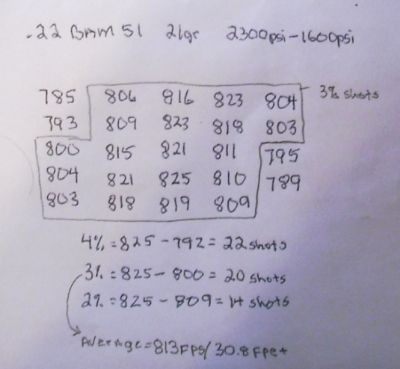 .22 BAM 51 21gr 2300psi-1600psi
785 806 816 823 804 3% shots
793 809 823 818 803
800 815 821 811 795
804 821 825 810 789
803 818 819 809
4% = 825 - 792 = 22 shots
3% = 825 - 800 = 20 shots
2% = 825 - 809 = 14 shots
Average = 813 FPS/30.8 Fpe+